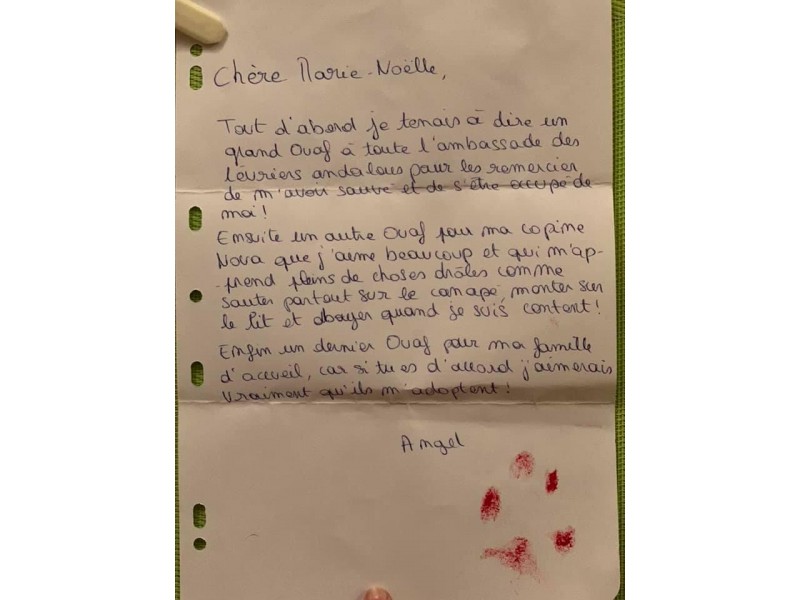 Chère Marie-Noëlle,
Tout d'abord je tenais à dire un
grand Ouaf à toute l'ambassade des
lévriers andalous pour les remercier
de m'avoir sauvé et de s'être occupé de
moi !
Ensuite un autre Ouaf pou ma copine
Nova que j'aime beaucoup et qui m'ap-
-prend pleins de choses drôles comme
sauter partout sur le canapé, monter sur
le lit et aboyer quand je suis content !
Enfin un dernier Ouaf pour ma famille
d'accueil, car si tu es d'accord j'aimerais
vraiment qu'ils m'adoptent !
Angel